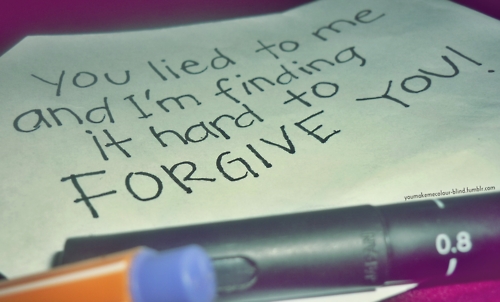 You lied to me
and I'm finding
it hard to
FORGIVE YOU!
youmakemecolour-blind.tumblr.com
0.8